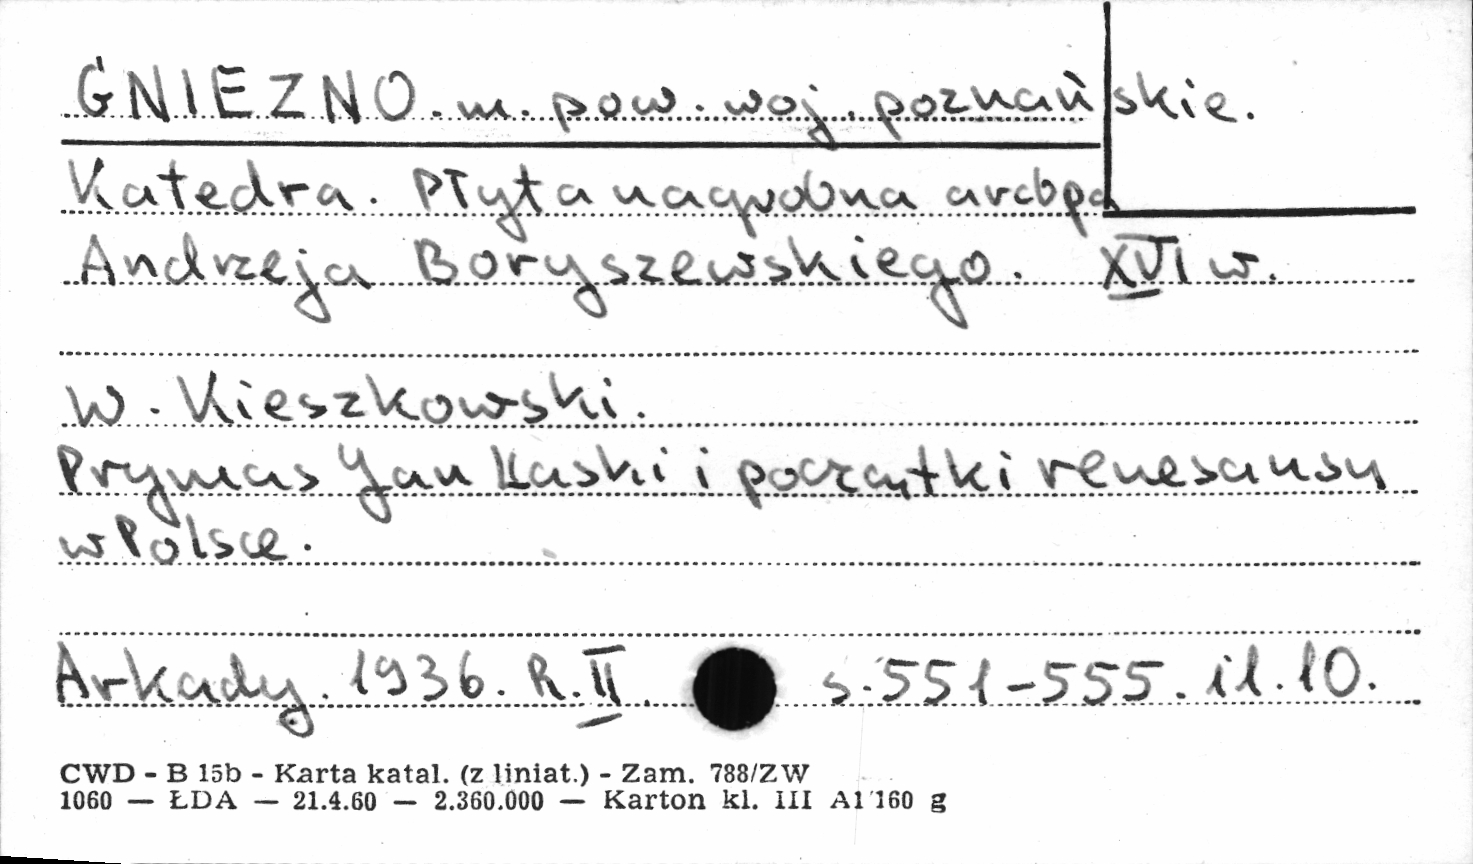 GNIEZNO. m. pow. woj. poznańskie.
Katedra. Płyta nagrobna arcbpa
Andrzeja Boryszewskiego. XVI w.
W. Kieszkowski.
Prymas Jan Łaski i początki renesansu
w Polsce.
Arkady. 1936. R. II. s. 551-555. il. 10.
CWD - B 15b - Karta katal. (z liniat.) - Zam. 788/ZW
1060 — ŁDA — 21.4.60 — 2.360.000 — Karton kl. III A1 160 g